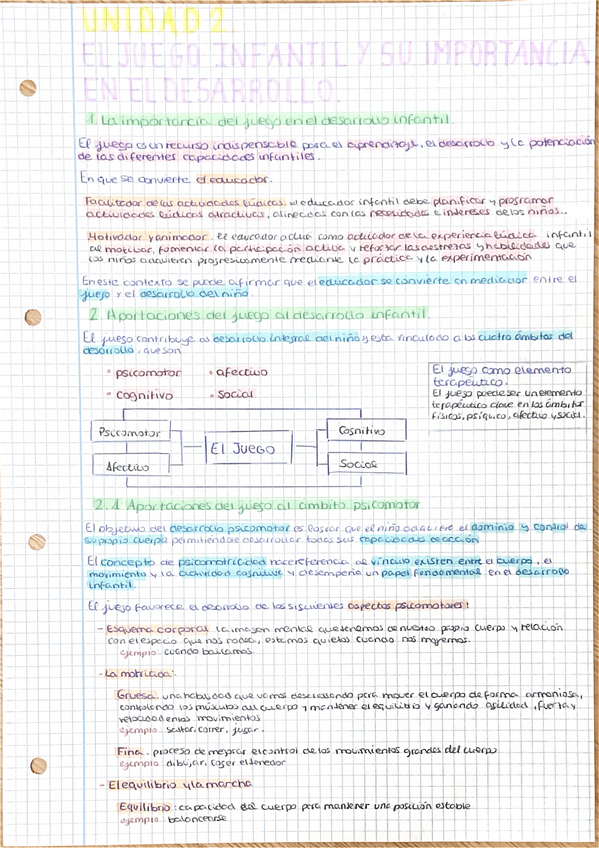 UNIDAD 2.
EL JUEGO INFANTIL Y SU IMPORTANCIA
EN EL DESARROLLO.
1. La importancia del juego en el desarrollo infantil.
El juego es un recurso indispensable para el aprendizaje, el desarrollo y la potenciación
de las diferentes capacidades infantiles.
En que se convierte el educador.
Facilitador de las actividades lúdicas, el educador infantil debe planificar y programar
actividades lúdicas atractivas, alineadas con las necesidades e intereses de los niños.
Motivador y animador, el educador actua como activador de la experiencia lúdica infantil
al motivar, fomentar la participación activa y reforzar las destrezas y habilidades que
los niños adquieren progresivamente mediante la práctica y la experimentación
En este contexto se puede afirmar que el educador se convierte en mediador entre el
juego y el desarrollo del niño.
2. Aportaciones del juego al desarrollo infantil.
El juego contribuye al desarrollo integral del niño y esta vinculado a los cuatro ámbitos del
desarrollo, que son
• psicomotor • afectivo
• cognitivo • social
El juego como elemento
terapéutico.
El juego puede ser un elemento
terapéutico clave en los ámbitos
físicos, psíquico, afectivo y social.
Psicomotor
Afectivo
El JUEGO
Cognitivo
Social
2.1 Aportaciones del juego al ámbito psicomotor
El objetivo del desarrollo psicomotor es lograr que el niño adquiere el dominio y control de
su propio cuerpo permitiéndole desarrollar todas sus capacidades de acción
El concepto de psicomotricidad hace referencia al vínculo existen entre el cuerpo, el
movimiento y la actividad cognitiva y desempeña un papel fundamental en el desarrollo
infantil.
El juego favorece el desarrollo de los siguientes aspectos psicomotores:
- Esquema corporal: la imagen mental que tenemos de nuestro propio cuerpo y relación
con el espacio que nos rodea, estamos quietos cuando nos movemos.
ejemplo: cuando bailamos
- La motricidad:
Gruesa: una habilidad que vamos desarrollando para mover el cuerpo de forma armoniosa,
controlando los músculos del cuerpo y mantener el equilibrio y ganando agilidad, fuerza y
velocidad en los movimientos
ejemplo: saltar, correr, jugar.
Fina: proceso de mejorar el control de los movimientos grandes del cuerpo
ejemplo: dibujar, coger el tenedor
- El equilibrio y la marcha
Equilibrio: capacidad del cuerpo para mantener una posición estable
ejemplo: balancearse